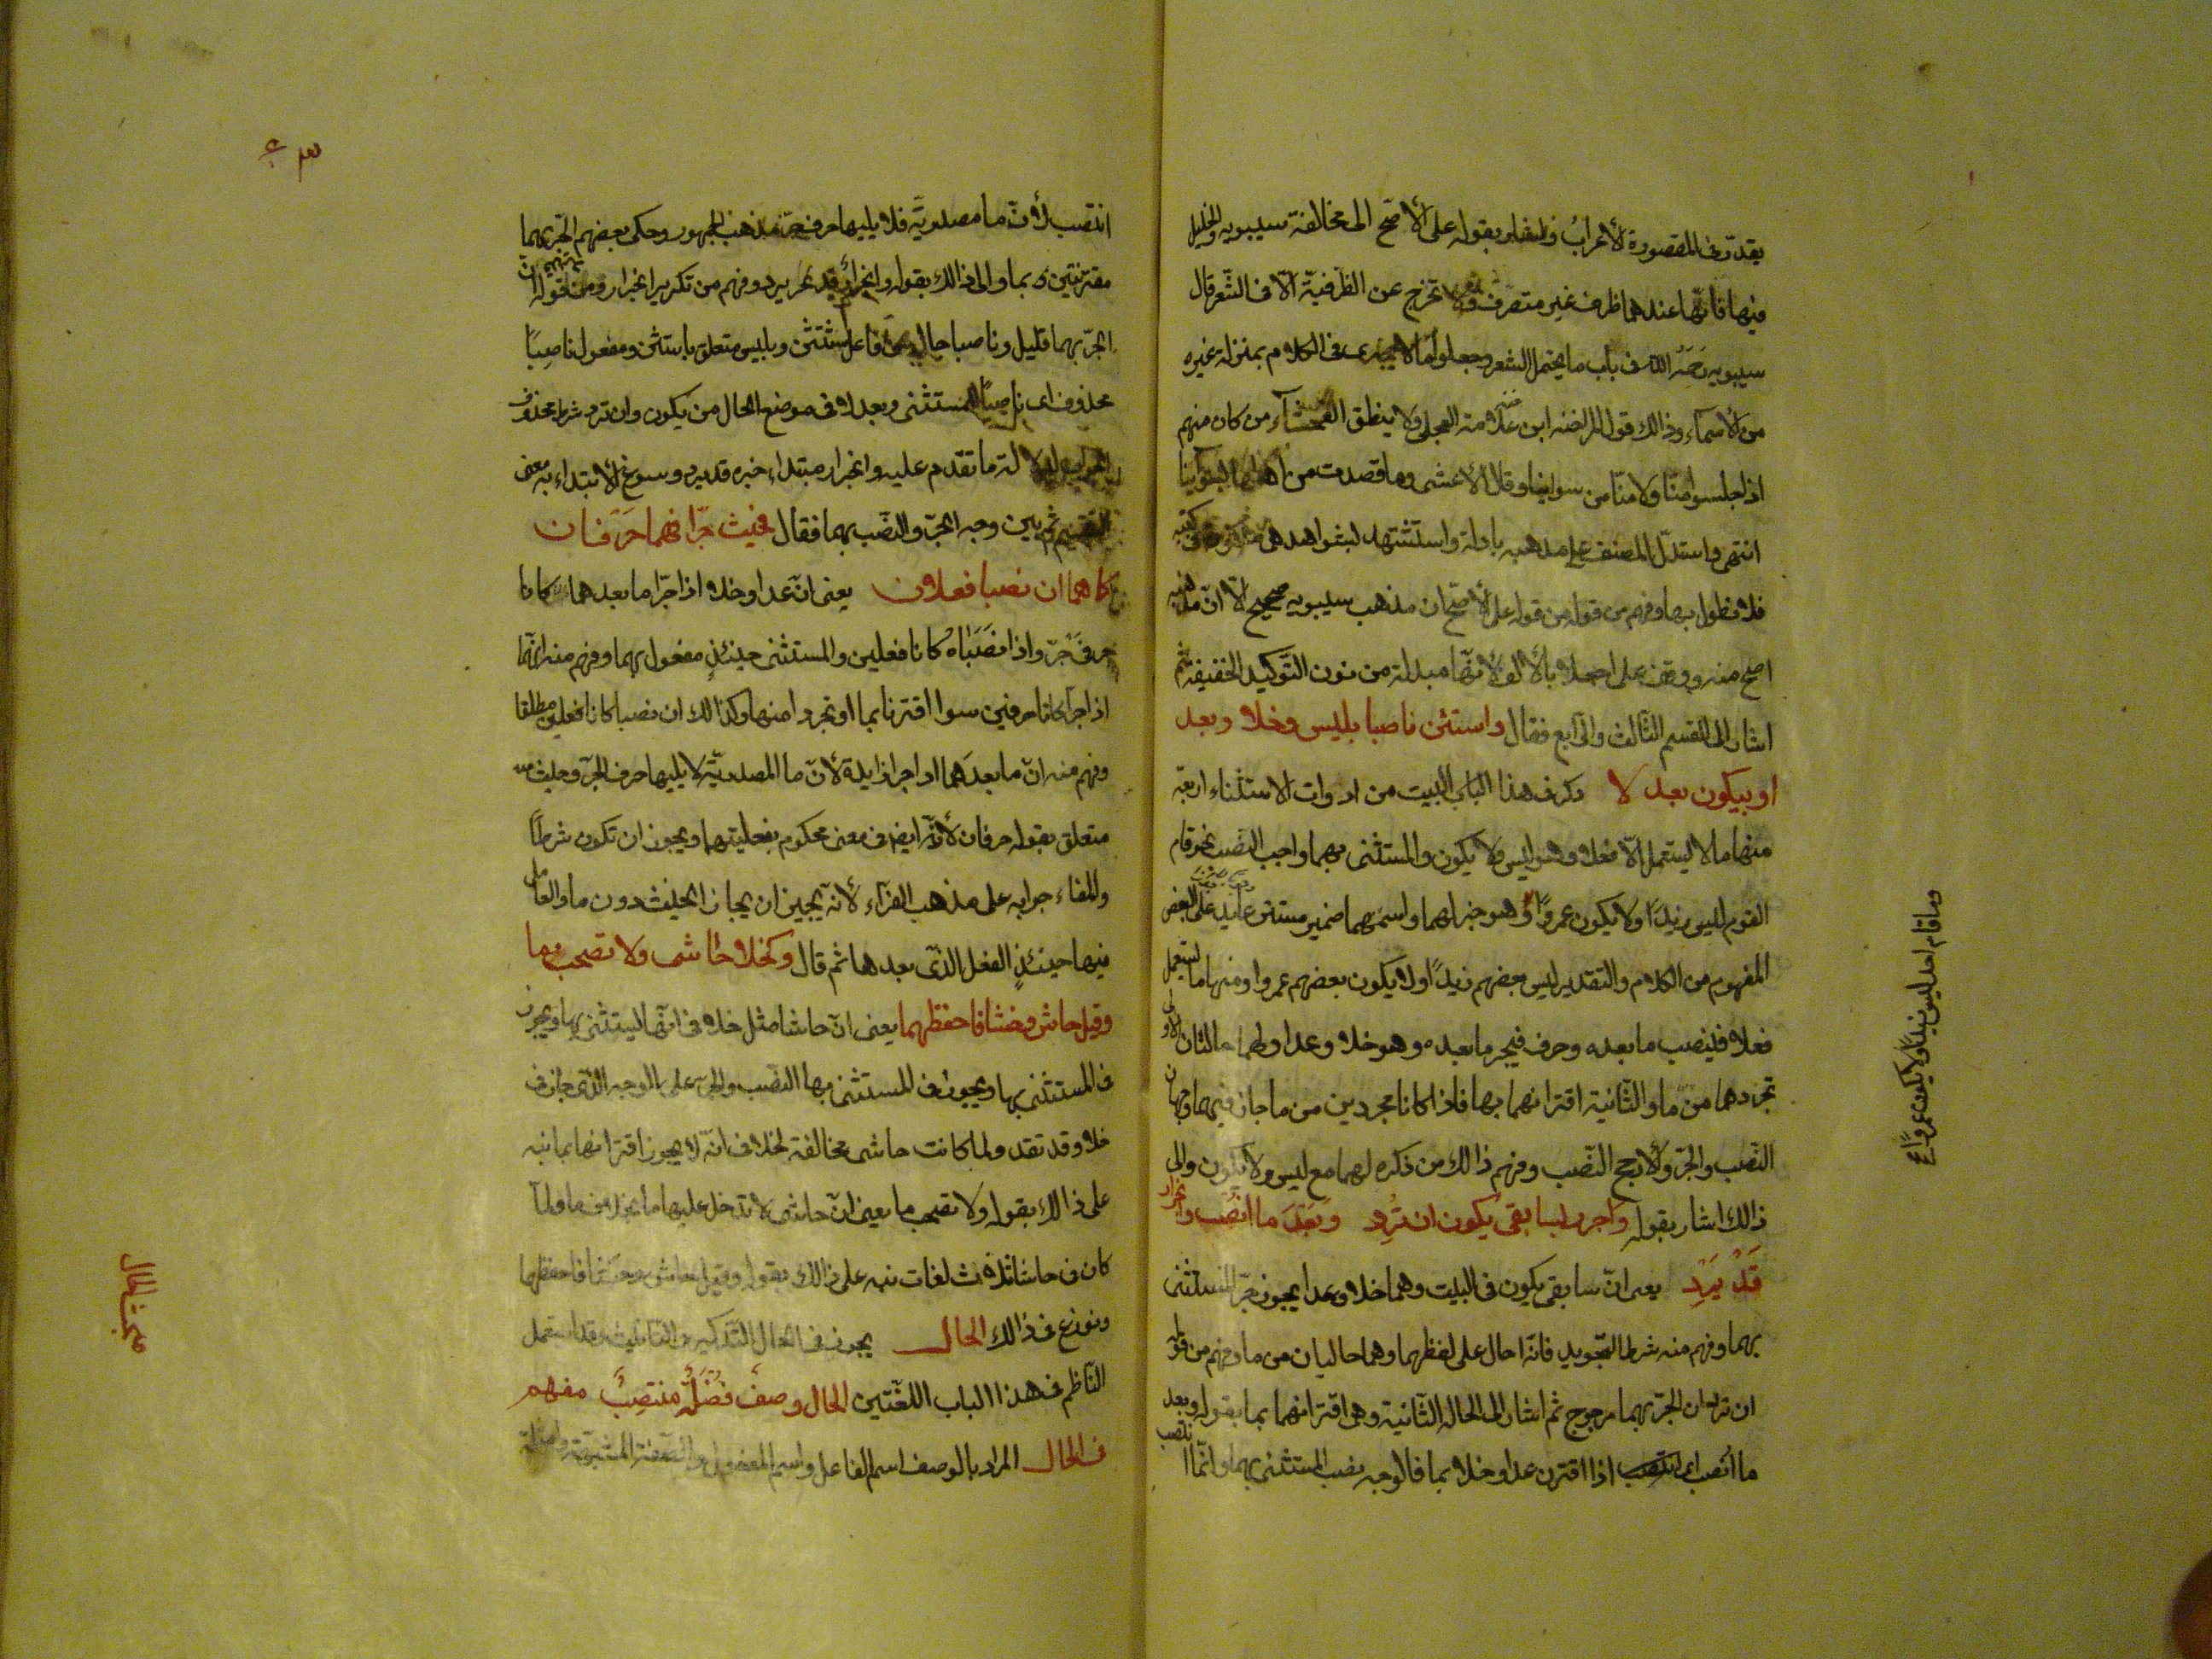 يقدر فى المقصورة الأعراب واشار بقوله على الأصح الى مخالفة سيبويه والخليل
فيها فانّها عندهما ظرف غير متصرف ولا تخرج عن الظرفيّة الّا فى الشّعر قال
سيبويه رَحمَهُ اللّه فى باب ما يحتمل الشعر وجعلوا ما لا يجرى فى الكلام بمنزلة غيره
من الأسماء وذالك قول المرار ابن سلامة العجلى ولا ينطق الفحشاء من كان منهم
اذا جلسوا منّا ولا منّا من سوائنا وقال الأعشى وما قصدت من اهلها لسوائنا
انتهى واستدلّ المصنف على مذهبه بادلة واستشهد بشواهد هى مذكورة فى كتبه
فلا نطول بها وفهم من قوله على الأصحّ ان مذهب سيبويه صحيح الّا انّ مذهبه
اصح منه ووقف على اجعلا بالألف لأنّها مبدلة من نون التّوكيد الخفيفة ثم
اشار الى القسم الثّالث والرّابع فقال واستثن ناصبا بليس وخلا وبعد
او بيكون بعد لا ذكر فى هذا البيت من ادوات الاستثناء اربعة
منها ما لا يستعمل الّا فعلا وهو ليس ولا يكون والمستثنى بهما واجب النّصب نحو قام
القوم ليس زيدًا ولا يكون عمروًا وهو خبر لهما واسمهما ضمير مستتر عايد على البعض
المفهوم من الكلام والتقدير ليس بعضهم زيدًا ولا يكون بعضهم عمروا ومنها ما يستعمل
فعلا فينصب ما بعده وحرف فيجر ما بعده وهو خلا وعدا ولهما حالتان الأولى
تجردهما من ما والثّانية اقترانهما بها فاذا كانا مجردين من ما جاز فيهما وجهان
النّصب والجرّ والأرجح النّصب وفهم ذالك من ذكره لهما مع ليس ولا يكون والى
ذالك اشار بقوله واجرر بسابقى يكون ان ترد وبعد ما انصب وانجرار
قَدْ يَرِد يعنى انّ سابقى يكون فى البيت وهما خلا وعدا يجوز جرّ المستثنى
بهما وفهم منه شرط التّجريد فانّه احال على لفظهما وهما خاليان من ما وفهم من قوله
ان ترد ان الجرّ بهما مرجوح ثم اشار الى الحالة الثّانية وهى اقترانهما بما بقوله وبعد
ما انصب اى اذا اقترن عدا وخلا بما فالوجه نصب المستثنى بهما وانّما
وما قام احد ليس زيدًا ولا يكون عمروًا
٤٣
انتصب لأنّ ما مصدريّة فلا يليها حرف جرّ هذا مذهب الجمهور وحكى بعضهم الجرّ بهما
مقترنتين بما والى ذالك بقوله وانجرار قد يرد وفهم من تكرير انجرار ومن قوله انّ
الجرّ بهما قليل وناصبا حال من فاعل استثن وبليس متعلق باستثن ومفعول ناصبًا
محذوف اى ناصبًا للمستثنى وبعد لا فى موضع الحال من يكون وان ترد شرط محذوف
الجواب لدلالة ما تقدم عليه وانجرار مبتداء خبره قد يرد وسوغ الأبتداء به معنى
التقسيم ثم بين وجه الجرّ والنصب بهما فقال وحيث جرّا فهما حَرفان
كما هما ان نصبا فعلان يعنى انّ عدا وخلا اذا جرّا ما بعدهما كانا
حرفى جَرّ واذا نَصَبَاهُ كانا فعلين والمستثنى حينئذٍ مفعول بهما وفهم منه انّهما
اذا جرّا كانا حرفين سوا اقترنا بما او تجردا منها وكذالك ان نصبا كانا فعلين مطلقا
وفهم منه انّ ما بعدهما اذا جرا زايدة لأنّ ما المصدريّة لا يليها حرف الجرّ وحيث
متعلق بقوله حرفان لأنّه ايضا فى معنى محكوم بفعليتهما ويجوز ان تكون شرطًا
والفاء جوابه على مذهب الفرّاء لأنّه يجيز ان يجاز بحيث دون ما والعامل
فيها حينئذٍ الفعل الّذى بعدها ثم قال وكخلا حاشى ولا تصحب ما
وقيل حاش وحشا فاحفظهما يعنى انّ حاشا مثل خلا فى انّها يستثنى بها ويجوز
فى المستثنى بها ويجوز فى المستثنى بها النّصب والجرّ على الوجه الّذى جاز فى
خلا وقد تقدم ولما كانت حاشى مخالفة لخلا فى انّه لا يجوز اقترانها بما نبه
على ذالك بقوله ولا تصحب ما يعنى انّ حاشى لا تدخل عليها ما ولمّا
كان فى حاشا ثلاث لغات نبه على ذالك بقوله وقيل حاش وحشا فاحفظهما
ونوزع فى ذالك الحال يجوز فى الحال التّذكير والتّأنيث وقد استعمل
النّاظم فى هذا الباب اللغتين الحال وصفٌ فَضْلَةٌ منتصِبُ مفهم
فى الحال المراد بالوصف اسم الفاعل واسم المفعول والصّفة المشبّهة وامثلة
مبحث الحال